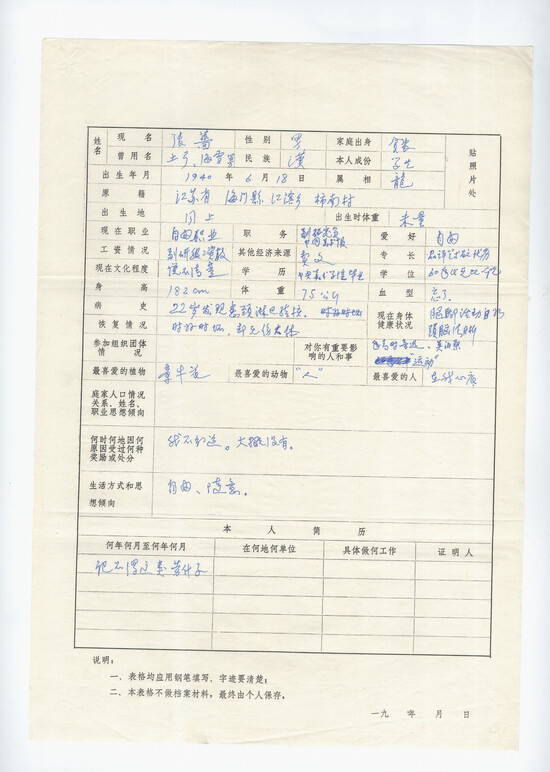 姓名 现名 张蔷 性别 男 家庭出身 贫农 贴照片处
曾用名 民族 漢 本人成份 学生
出生年月 1940年6月18日 属相 龍
原籍 江苏省 海门縣 江滨乡 柿南村
出生地 同上 出生时体重 未量
现在职业 自由职业 职务 爱好 自由
工资情况 其他经济来源 卖文 专长
现在文化程度 学历 学位
身高 182cm 体重 75公斤 血型 忘了
病史 22岁发现患颈淋巴结核。时好时坏 现在身体健康状况
恢复情况 时好时坏,却无伤大体
参加组织团体情况 对你有重要影响的人和事 "运动"
最喜爱的植物 牵牛花 最喜爱的动物 "人" 最喜爱的人
庭家人口情况
关系、姓名、
职业思想倾向
何时何地因何
原因受过何种
奖励或处分 我不知道。大概没有。
生活方式和思
想倾向 自由、随意。
本人简历
何年何月至何年何月 在何地何单位 具体做何工作 证明人
记不得这类劳什子
说明:
一、表格均应用钢笔填写,字迹要清楚;
二、本表格不做档案材料,最终由个人保存。
一九 年 月 日